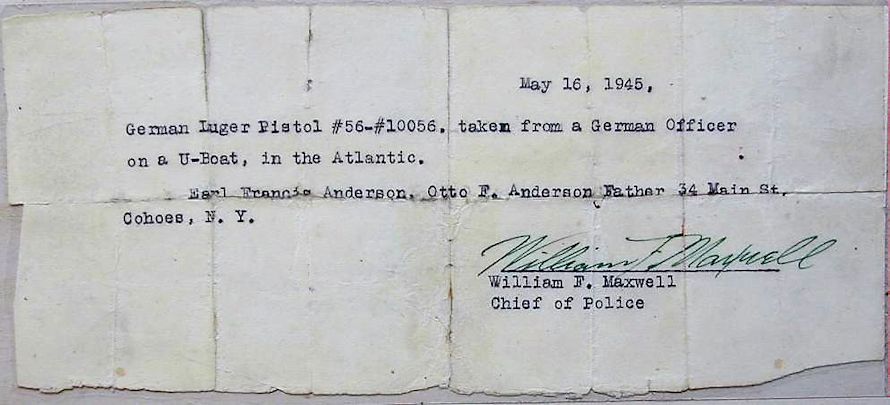 May 16, 1945,
German Luger Pistol #56-#10056. taken from a German Officer
on a U-Boat, in the Atlantic.
Earl Francis Anderson, Otto F. Anderson Father 34 Main St.
Cohoes, N. Y.
William F. Maxwell
William F. Maxwell
Chief of Police